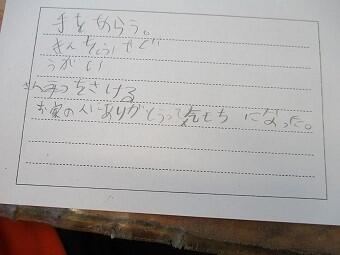 手をあらう。
きんちょうかい
うがい
さんみつをさける
お家の人にありがとうって気もちになった。